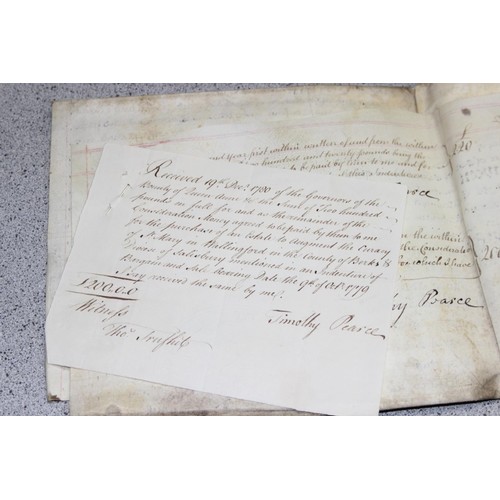 Received 19th Decr. 1780 of the Governors of the
Bounty of Queen Anne the Sum of Two hundred
pounds in full for and as the remainder of the
Consideration Money agreed to be paid by them to me
for the purchase of an Estate to augment the Curacy
of St. Mary in Wallingford in the County of Berks &
Diocese of Salisbury mentioned in an Indenture of
Bargain and Sale bearing Date the 9th of Octr. 1779
I say received the same by me
£200.0.0
Timothy Pearce
Witness
Thos.
and Year first within written of and from the within
hundred and twenty pounds being the
to be paid by them to me and for
120
Pearce
the within
200
Pearce